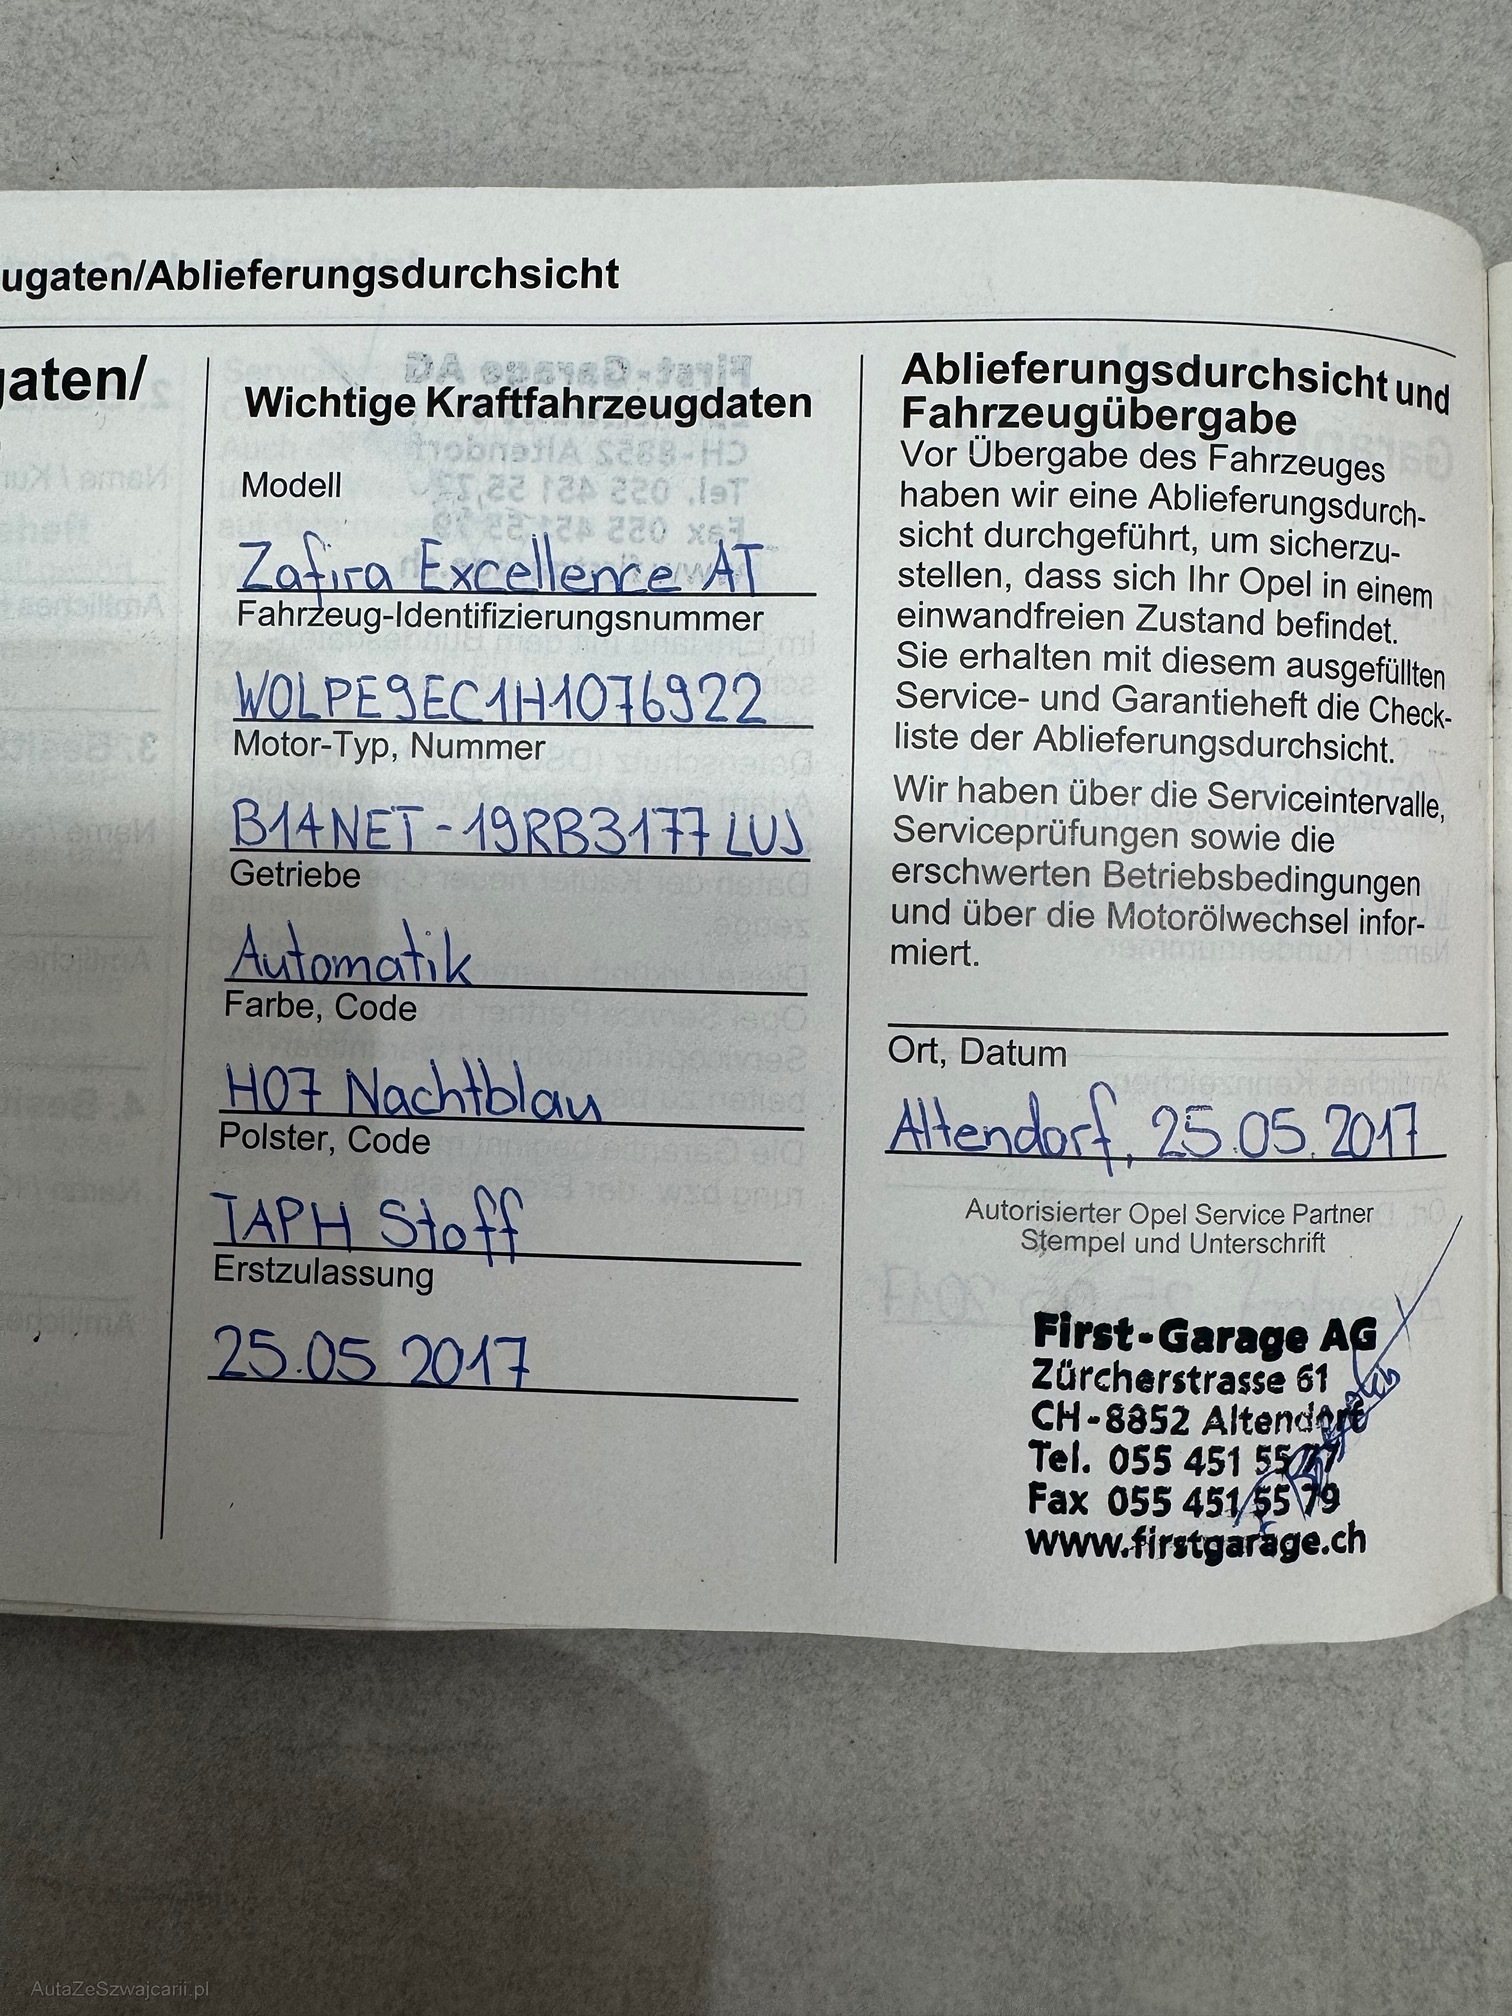 ugaten/Ablieferungsdurchsicht
gaten/
Wichtige Kraftfahrzeugdaten
Modell
Zafira Excellence AT
Fahrzeug-Identifizierungsnummer
W0LPE9EC1H1076922
Motor-Typ, Nummer
B14NET-19RB3177 LUJ
Getriebe
Automatik
Farbe, Code
H07 Nachtblau
Polster, Code
TAPH Stoff
Erstzulassung
25.05 2017
Ablieferungsdurchsicht und
Fahrzeugübergabe
Vor Übergabe des Fahrzeuges
haben wir eine Ablieferungsdurch-
sicht durchgeführt, um sicherzu-
stellen, dass sich Ihr Opel in einem
einwandfreien Zustand befindet.
Sie erhalten mit diesem ausgefüllten
Service- und Garantieheft die Check-
liste der Ablieferungsdurchsicht.
Wir haben über die Serviceintervalle,
Serviceprüfungen sowie die
erschwerten Betriebsbedingungen
und über die Motorölwechsel infor-
miert.
Ort, Datum
Altendorf, 25.05.2017
Autorisierter Opel Service Partner
Stempel und Unterschrift
First-Garage AG
Zürcherstrasse 61
CH-8852 Altendorf
Tel. 055 451 55 77
Fax 055 451 55 79
www.firstgarage.ch
AutaZeSzwajcarii.pl